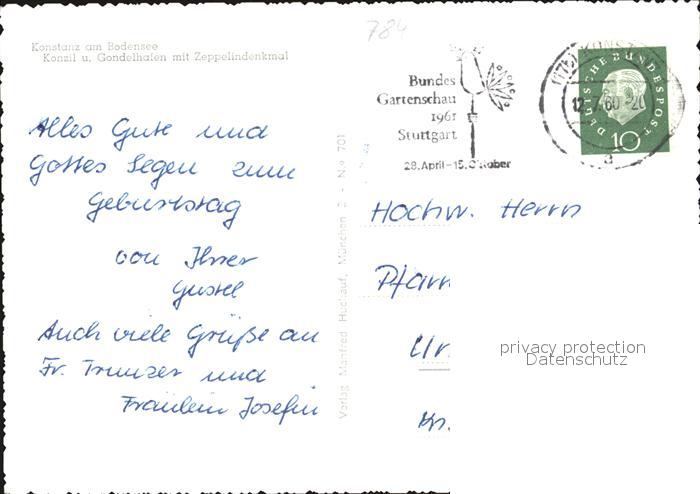 784
Konstanz am Bodensee
Konzil u. Gondelhafen mit Zeppelindenkmal
Alles Gute und
Gottes Segen zum
Geburtstag
von Ihrer
Gustel
Auch viele Grüße an
Fr. und
Fräulein Josefin
Verlag Manfred Huckauf, München 2 - N.o 701
Bundes
Gartenschau
1961
Stuttgart
28. April-15. Oktober
KONSTANZ
12.7.60-20
a
DEUTSCHE BUNDESPOST
10
Hochw. Herrn
Pfarr
Ur
Kn.
privacy protection
Datenschutz